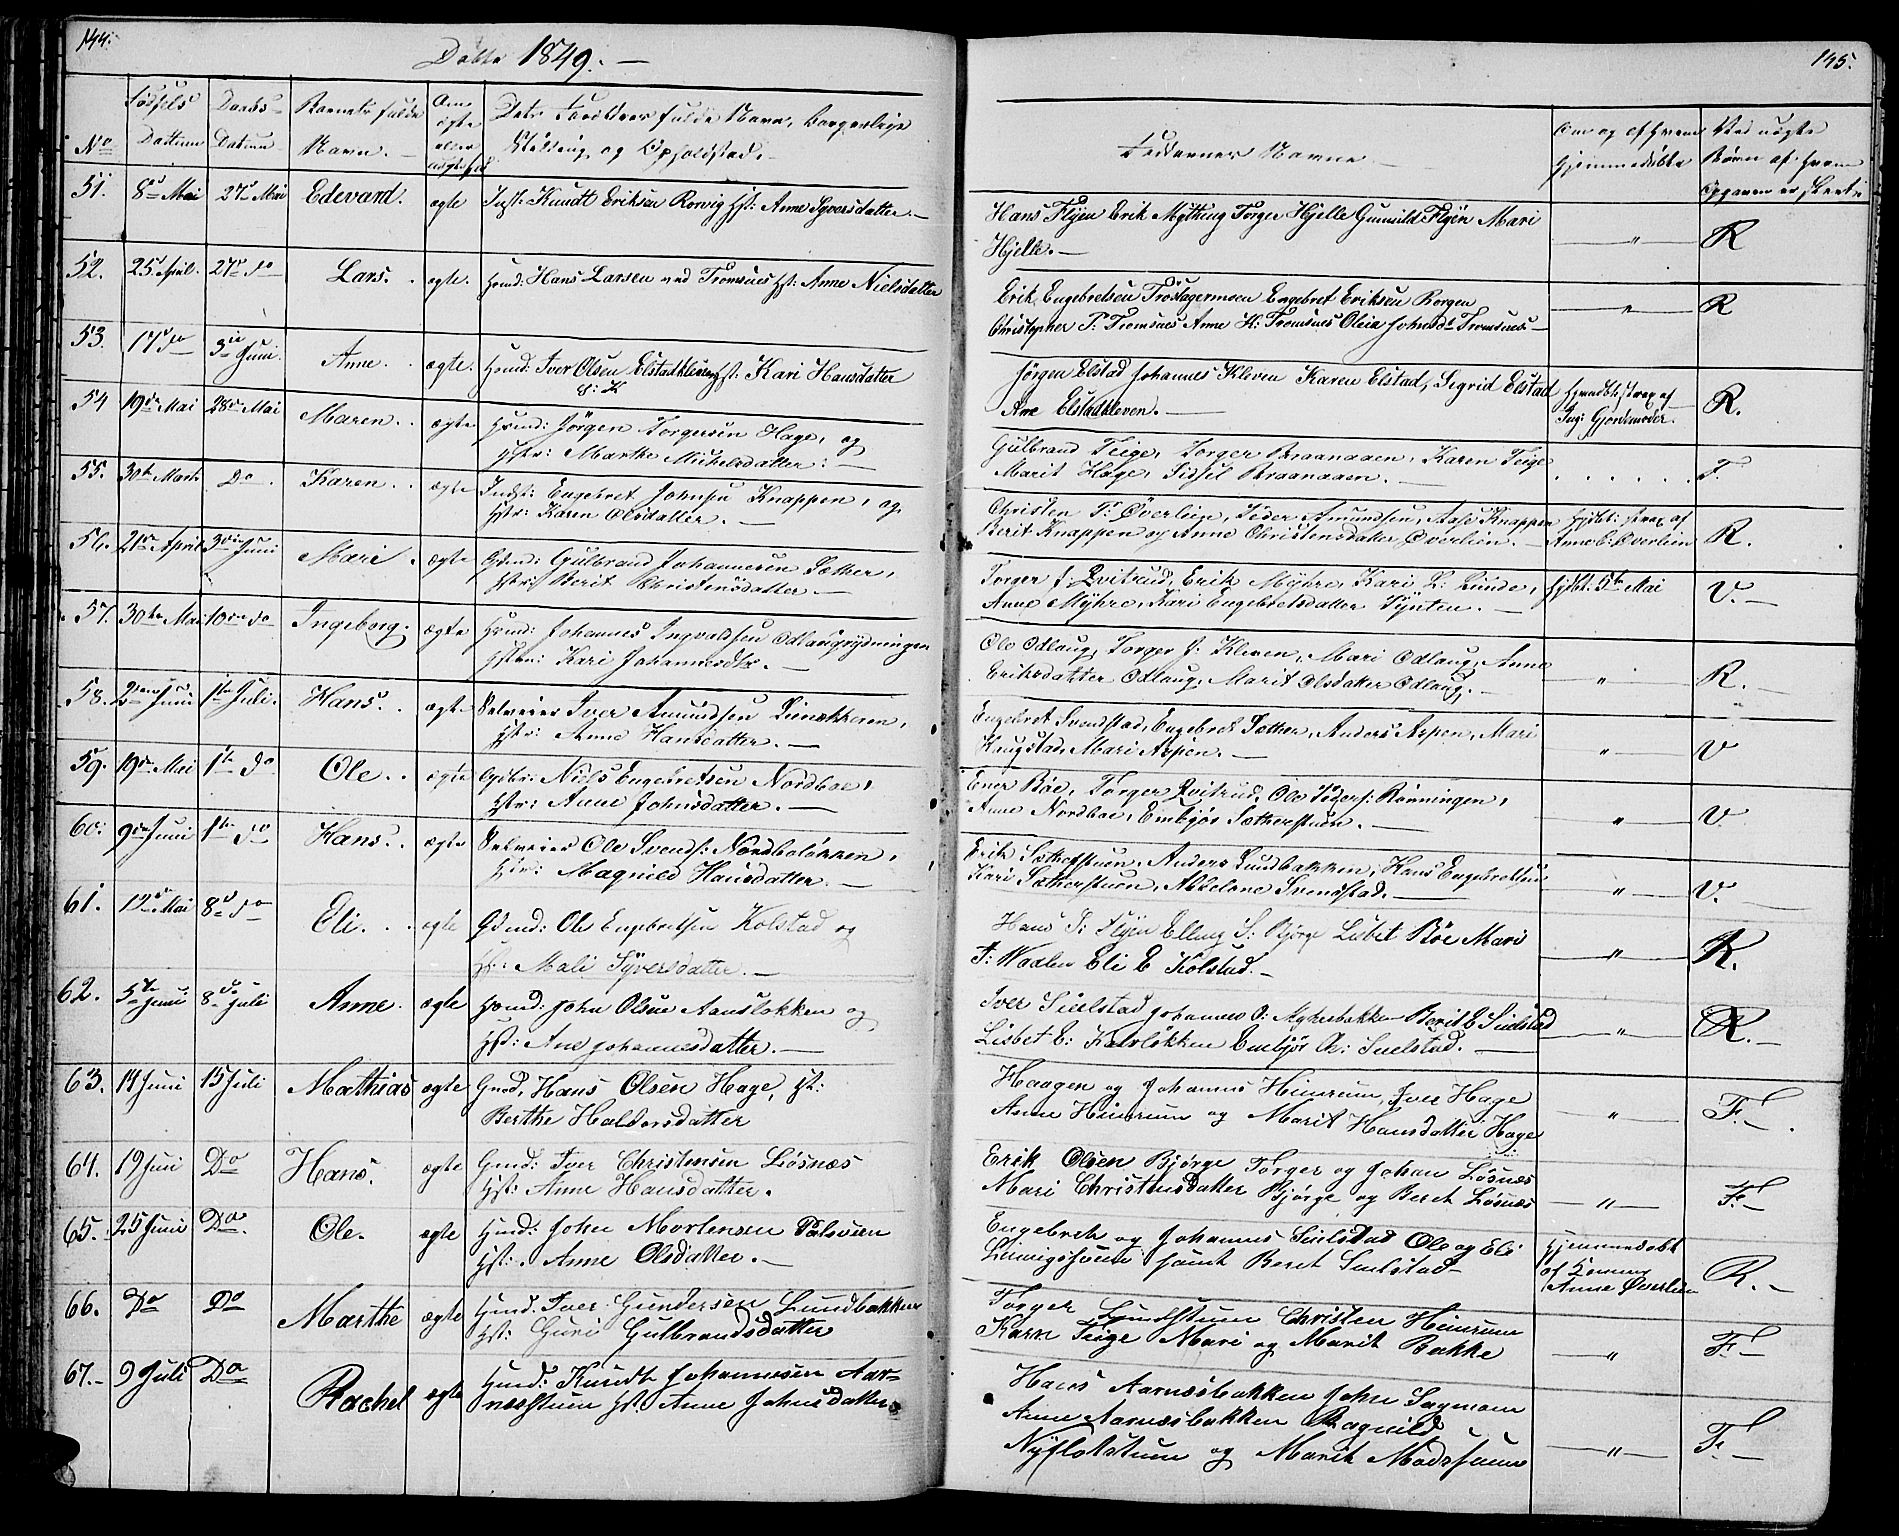 144.
Døbte 1849. —
No
Fødsels Dattum
Daabs Datum
Barnets fulde Navn. —
Om ægte eller uægtefød
Dets Forældres fulde Navn, borgerlige Stilling og Opholdsted. —
51. 8de Mai 27de Mai Edevard. ægte Inst: Knudt Eriksen Rorvig Hst: Anne Syversdatter. —
52. 25de April. 27de Do Lars. ægte. Hmd: Hans Larsen ved Tromsnes Hst: Anne Nielsdatter
53. 17de Do 3die Juni. Anne. ægte. Hmd: Iver Olsen Elstadkleven Hst: Kari Hansdatter
54 19de Mai 28de Mai Maren. ægte Hmd: Jörgen Torgersen Hage, og
Hstr: Marthe Michelsdatter: —
55. 30te Marts Do Karen. ægte Indst: Engebret Johnsen Knappen, og
Hstr: Karen Olsdatter. —
56. 21de April 3die Juni Mari ægte Gdmd: Gulbrand Johannesen Sæther,
Hstr: Berit Christensdatter. —
57. 30te Mai 10de Do Ingeborg. ægte Hmd: Johannes Ingvaldsen Odlaugrydningen
Hstr: Kari Johannesdtr. —
58. 2den Juni 1ste Juli. Hans. ægte Selveier Iver Amundsen
Hstr: Anne Hansdatter. —
59. 19de Mai 1ste Do Ole. ægte Gdbr: Niels Engebretsen Nordboe,
Hstr: Anne Johnsdatter. —
60. 9de Juni 1ste Do Hans. ægte Selveier Ole Svends: Nordboløkken,
Hstr: Magnild Hansdatter. —
61. 12te Mai 8de Do Eli. ægte Gdmd: Ole Engebretsen Kolstad og
Hst: Mali Syversdatter. —
62. 5te Juni 8de Juli Anne. ægte Hmd: John Olsen Aanslökken og
Hst: Ane Johannesdatter. —
63. 14 Juni 15 Juli Mathias ægte Gmd, Hans Olsen Hage, Hst:
Berthe Haldorsdatter
64. 19 Juni Do Hans. ægte Gmd: Iver Christensen Løsnæs
Hst: Anne Hansdatter.
65. 25 Juni Do. Ole. ægte Hmd: John Mortensen
Hst: Anne Olsdatter. —
66. Do Do Marthe ægte Hmd. Iver Gundersen Lundbakken
Hst: Guri Gulbrandsdatter
67. — 9 Juli Do Rachel ægte Hmd: Knudt Johannesen Aar-
næsstuen Hst. Anne Johnsdatter
145.
Faddernes Navne —
Om og af hvem hjemmedøbte
Ved uægte Børn af hvem Opgaven er skeet
Hans Flyen Erik Mytting Torger Hjelle Gunnild Flyen Mari
Hjelle. — — " — R
Erik Engebretsen Trostagermoen Engebret Eriksen Borgen
Christopher P: Tromsnes Anne H: Tromsnes Olein Johnsd: Tromsnes — — " — R
Jörgen Elstad Johannes Kleven Karen Elstad, Sigrid Elstad
Ane Elstadkleven. — Hjemdbt strax af Ing: Gjordemoder. R.
Gulbrand Teige, Torger Braanaaen, Karen Teige
Marit Hage, Sidsel Braanaaen. — F.
Christen P: Øverlien, Peder Amundsen, Aase Knappen
Berit Knappen og Anne Christensdatter Øverlien. — Hjdbt: strax af Anne C: Øverlien R.
Torger J: Qvitrud, Erik Myhre, Kari L: Linde,
Anne Myhre, Kari Engebretsdatter — Hjdbt: 5te Mai V. —
Ole Odlaug, Torger J: Kleven, Mari Odlaug, Anne
Eriksdatter Odlaug, Marit Olsdatter Odlaug. — " R. —
Engebret Svendstad, Engebret Sæther, Anders Aspen, Mari
Kaugstad, Mari Aspen. — " V
Ener Böe, Torger Qvitrud, Ole Peders: Rønningen,
Anne Nordboe, Embjør Sætherstuen. — " V.
Erik Sætherstuen, Anders Lundbakken, Hans Engebretsen
Kari Sætherstuen, Svendstad. — — " — V. —
Hans P: Flyen Elling S: Bjørge Lisbet Böe Mari
T: Eli E Kolstad. — — " — R.
Iver Sielstad Johannes O: Berit E Sielstad
Lisbet E: Embjør Sielstad. — — " — R. —
Haagen og Johannes Heinrum, Iver Hage
Anne Heinrum og Marit Hansdatter Hage — " — F. —
Erik Olsen Bjørge Torger og Johan Løsnæs
Mari Christensdatter Bjørge og Beret Løsnæs — " — F. —
Engebreth og Johannes Sielstad Ole og Eli
samt Beret Sielstad — Hjemmedøbt af Anne Øverlien R. —
Torger Christen Heinrum
Karn Teige Mari og Marit Bakke — " — F. —
Hans Aarnæsbakken John
Anne Aarnæsbakken Ragnild
og Marit — " — F. —